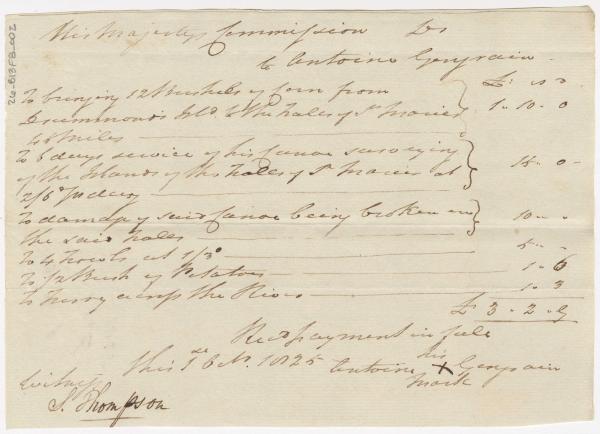 26-B13F8-002
His Majestys Commission Dr
to Antoine Gengrain
£ s D
To bringing 12 Bushels of corn from
Drummonds Isld. to the Falls of St Maries 1 - 10 - 0
48 miles
To 6 days service of his Canoe surveying
of the Islands of the Falls of St Maries at 15 - 0 -
2/6 pr day
To damage of said Canoe being broken in 10 - -
the said Falls
To 4 Fowls at 1/3 5 - -
To 1/2 Bush of Potatoes 1 - 6
To Ferry across the River 1 - 3
£ 3 - 2 - 9
Recd payment in full
this 1st Octr. 1825 Antoine his X Gengrain
mark
Witness
S. Thompson